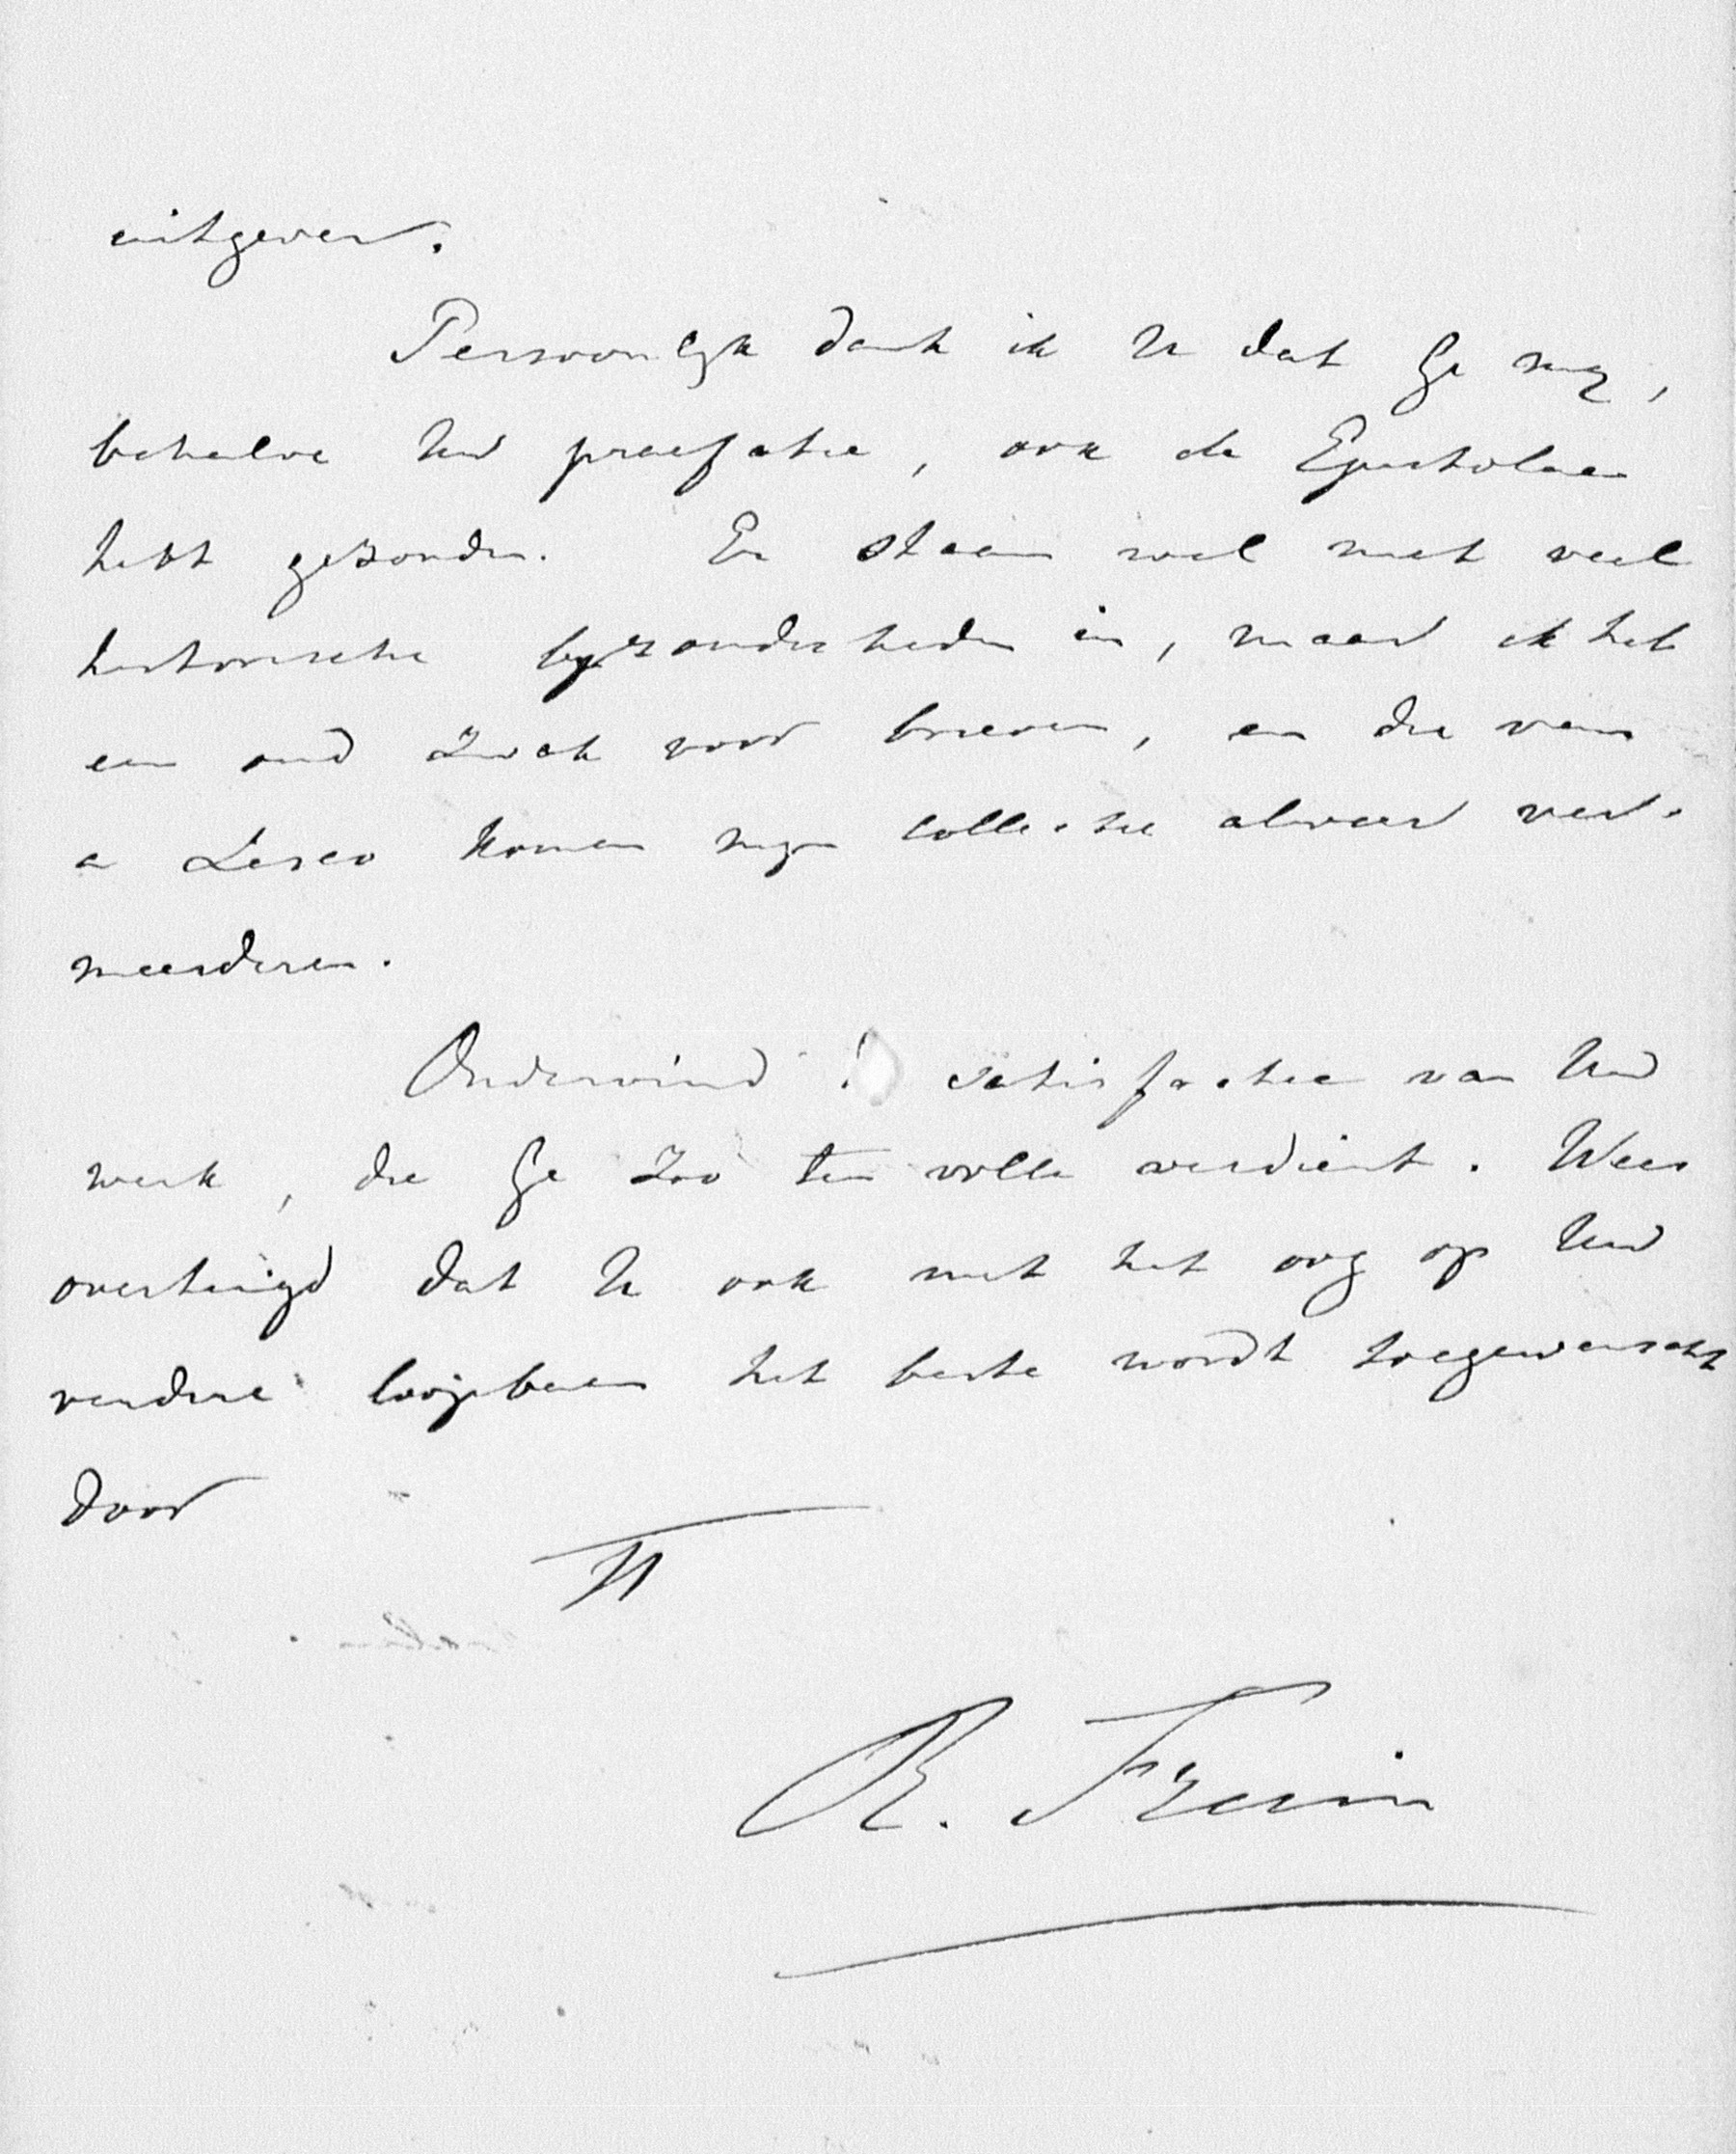 uitgeven.
Persoonlyk dank ik U dat Ge my,
behalve Uw praefatie, ook de Epistolae
hebt gezonden. Er staan wel niet veel
historische byzonderheden in, maar ik heb
een oud zwak voor brieven, en die van
a Lasco komen myn collectie alweer ver-
meerderen.
Ondervind satisfactie van Uw
werk, die Ge zoo ten volle verdient. Wees
overtuigd dat U ook met het oog op Uw
verdere loopbaan het beste wordt toegewenscht
door
R. Fruin